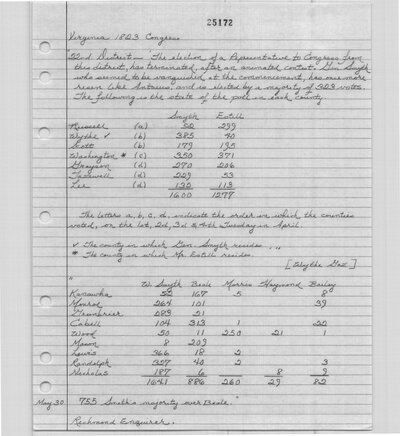 25172
Virginia 1823 Congress
"22nd District — "The election of a Representative to Congress from
this district, has terminated, after an animated contest. Gen. Smyth
who seemed to be vanquished at the commencement, has once more
risen like Antaeus, and is elected by a majority of 323 votes.
The following is the state of the poll in each county.
Smyth Estill
Russell (a) 299
Wythe ✓ (b) 385 40
Scott (b) 179 195
Washington * (c) 350 371
Grayson (d) 270 206
Tazewell (d) 229 53
Lee (d) 135 113
1600 1277
The letters a, b, c, d, indicate the order in which the counties
voted, on the 1st, 2d, 3d & 4th Tuesday in April.
✓ The county in which Gen. Smyth resides. "
* The county in which Mr. Estill resides.
[Wythe Gaz]
"
W. Smyth Beale Morris Haymond Bailey
Kanawha 52 167 5 8
Monroe 264 101 39
Greenbrier 51
Cabell 104 313 1 20
Wood 50 11 250 21 1
Mason 8 209
Lewis 366 18 2
Randolph 40 2 3
Nicholas 187 6 8 9
1641 886 260 29 82
May 30 755 Smith's majority over Beale."
Richmond Enquirer.